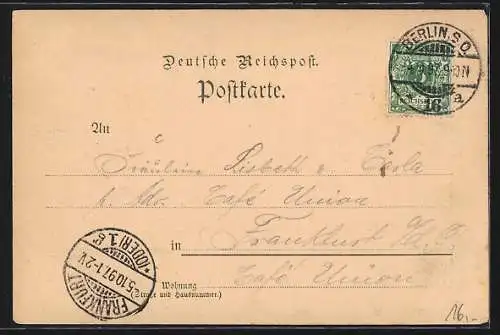 BERLIN, S.O.
16 a
Deutsche Reichspost.
Postkarte.
An
Fräulein Lisbeth
p. Adr. Café Union
in Frankfurt
Café Union
Wohnung
(Straße und Hausnummer.)
FRANKFURT (ODER) 1
5.10.97. 1-2N
16,-